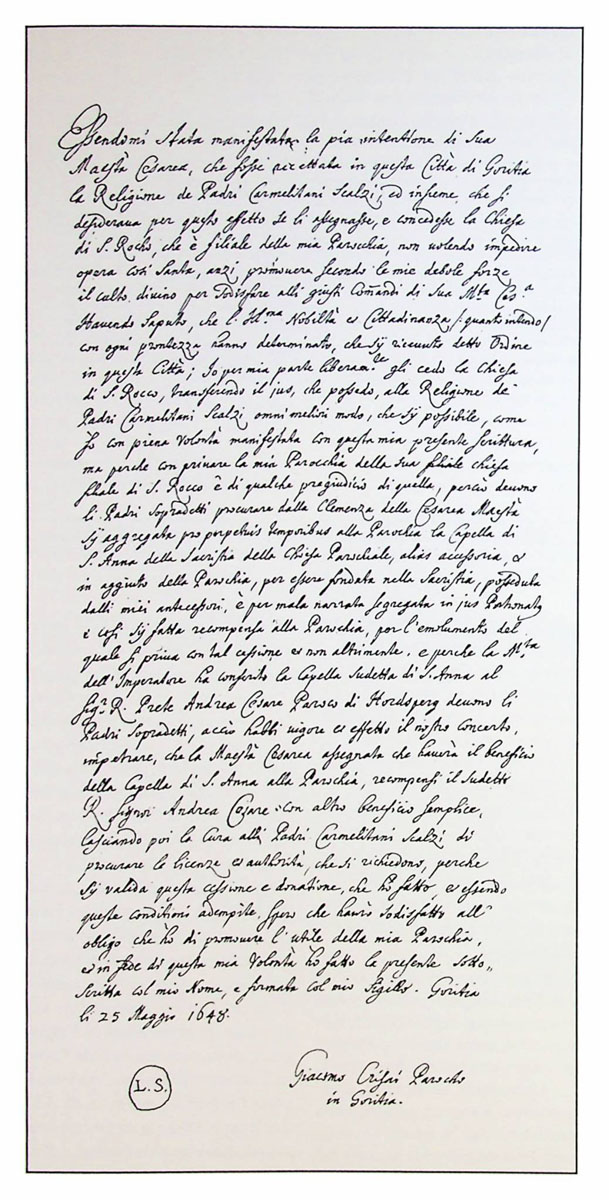 Essendomi stata manifestata la pia intentione di sua
Maestà Cesarea, che fosse ricettata in questa Città di Goritia
la Religione de Padri Carmelitani Scalzi, ed insieme che si
desideraua per questo effetto se li assegnasse, e concedesse la Chiesa
di S. Rocho, che è filiale della mia Parochia, non uolendo impedire
opera così Santa, anzi promouere secondo le mie debole forze
il culto diuino per sodisfare alli giusti Comandi di Sua M.ta Ces.a
Hauendo saputo, che l'Ill.ma Nobiltà et Cittadinanza /: quanto intendo/
con ogni prontezza hanno determinato, che sij riceuuto detto Ordine
in questa Città; Io per mia parte liberam.te gli cedo la Chiesa
di S. Rocco, transferendo il jus, che possedo, alla Religione de
Padri Carmelitani Scalzi omni meliori modo, che sij possibile, come
Io con piena Volontà manifestata con questa mia presente Scrittura,
ma perche con priuare la mia Parocchia della sua filiale chiesa
filiale di S. Rocco è di qualche pregiudicio di quella, perciò deuono
li Padri Sopradetti procurare dalla Clemenza della Cesarea Maestà
sij aggregata pro perpetuis temporibus alla Parochia la Capella di
S. Anna della Sacristia della Chiesa Parochiale, alias accessoria, et
in aggiuto della Parochia, per essere fondata nella Sacristia, posseduta
dalli miei antecessori, è per mala narrata segregata in jus Patronato
e così sij fatta recompensa alla Parochia, por l'emolumento del
quale si priua con tal cessione et non altrimente. e perche la M.ta
dell'Imperatore ha conferito la Capella Sudetta di S. Anna al
Sig.r R. Prete Andrea Cesare Paroco di Hordsperg deuono li
Padri Sopradetti, acciò habbi uigore et effetto il nostro concerto,
impetrare, che la Maestà Cesarea assegnata che hauerà il beneficio
della Capella di S. Anna alla Parochia, recompensi il Sudetto
R. Signor Andrea Cesare con altro beneficio semplice,
lasciando poi la Cura alli Padri Carmelitani Scalzi di
procurare le licenze et authorità, che si richiedono, perche
sij valida questa cessione e donatione, che hò fatto et essendo
queste conditioni adempite, spero che haurò sodisfatto all'
obligo che hò di promouere l'utile della mia Parochia,
et in fede di questa mia Volontà hò fatto la presente sotto„
scritta col mio Nome, e formata col mio Sigillo. Goritia
li 25 Maggio 1648.
L.S.
Giacomo Crisai Parocho
in Goritia.